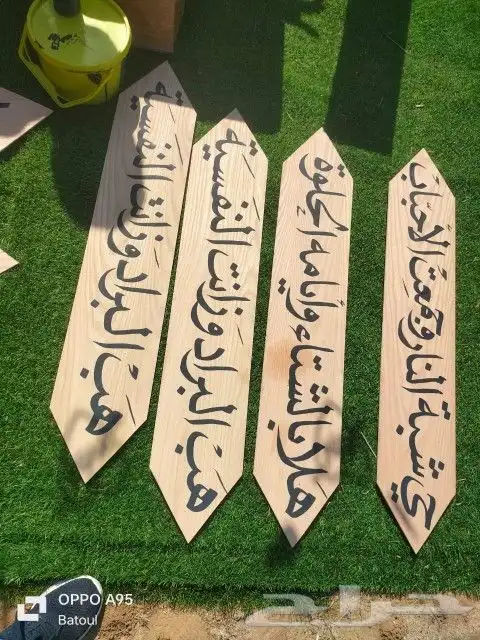 هبّ البراد وزانت النفسيّة
هبّ البراد وزانت النفسيّة
هلا بالشتاء وأيامه الحلوة
حي شبة النار وجمعت الأحباب
OPPO A95
Batoul
حراج